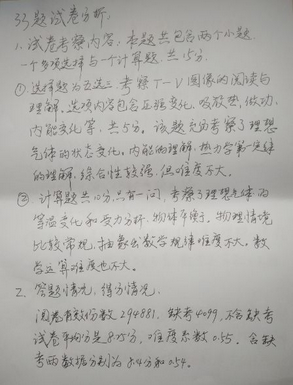 33题试卷分析:
1、试卷考察内容:本题共包含两个小题
一个多项选择与一个计算题,共15分.
①选择题为五选三,考察T-V图像的阅读与
理解.选项内容包含压强变化、吸放热、做功、
内能变化等,共5分。该题充分考察了理想
气体的状态变化、内能的理解、热力学第一定律
的理解,综合性较强,但难度不大。
②计算题共10分只有一问,考察了理想气体的
等温变化和受力分析、物体平衡。物理情境
比较常规,抽象出数学规律难度不大。数
学运算难度也不大。
2、答题情况,得分情况。
阅卷有效份数294881,缺考4099,不含缺考
试卷平均分是8.25分,难度系数0.55。含缺
考两数据分别为8.14分和0.54.